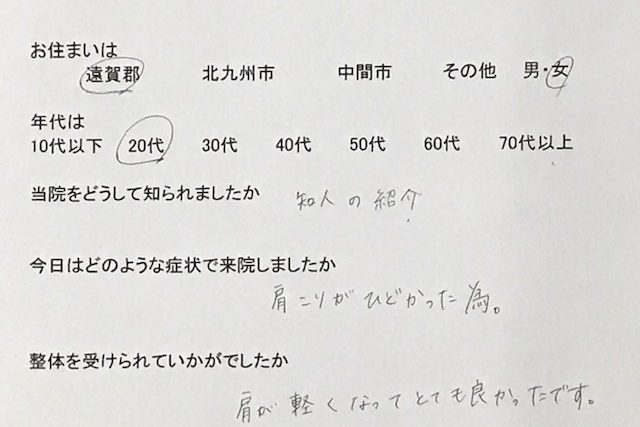 お住まいは
遠賀郡 北九州市 中間市 その他 男・女
年代は
10代以下 20代 30代 40代 50代 60代 70代以上
当院をどうして知られましたか 知人の紹介
今日はどのような症状で来院しましたか
肩こりがひどかった為。
整体を受けられていかがでしたか
肩が軽くなってとても良かったです。